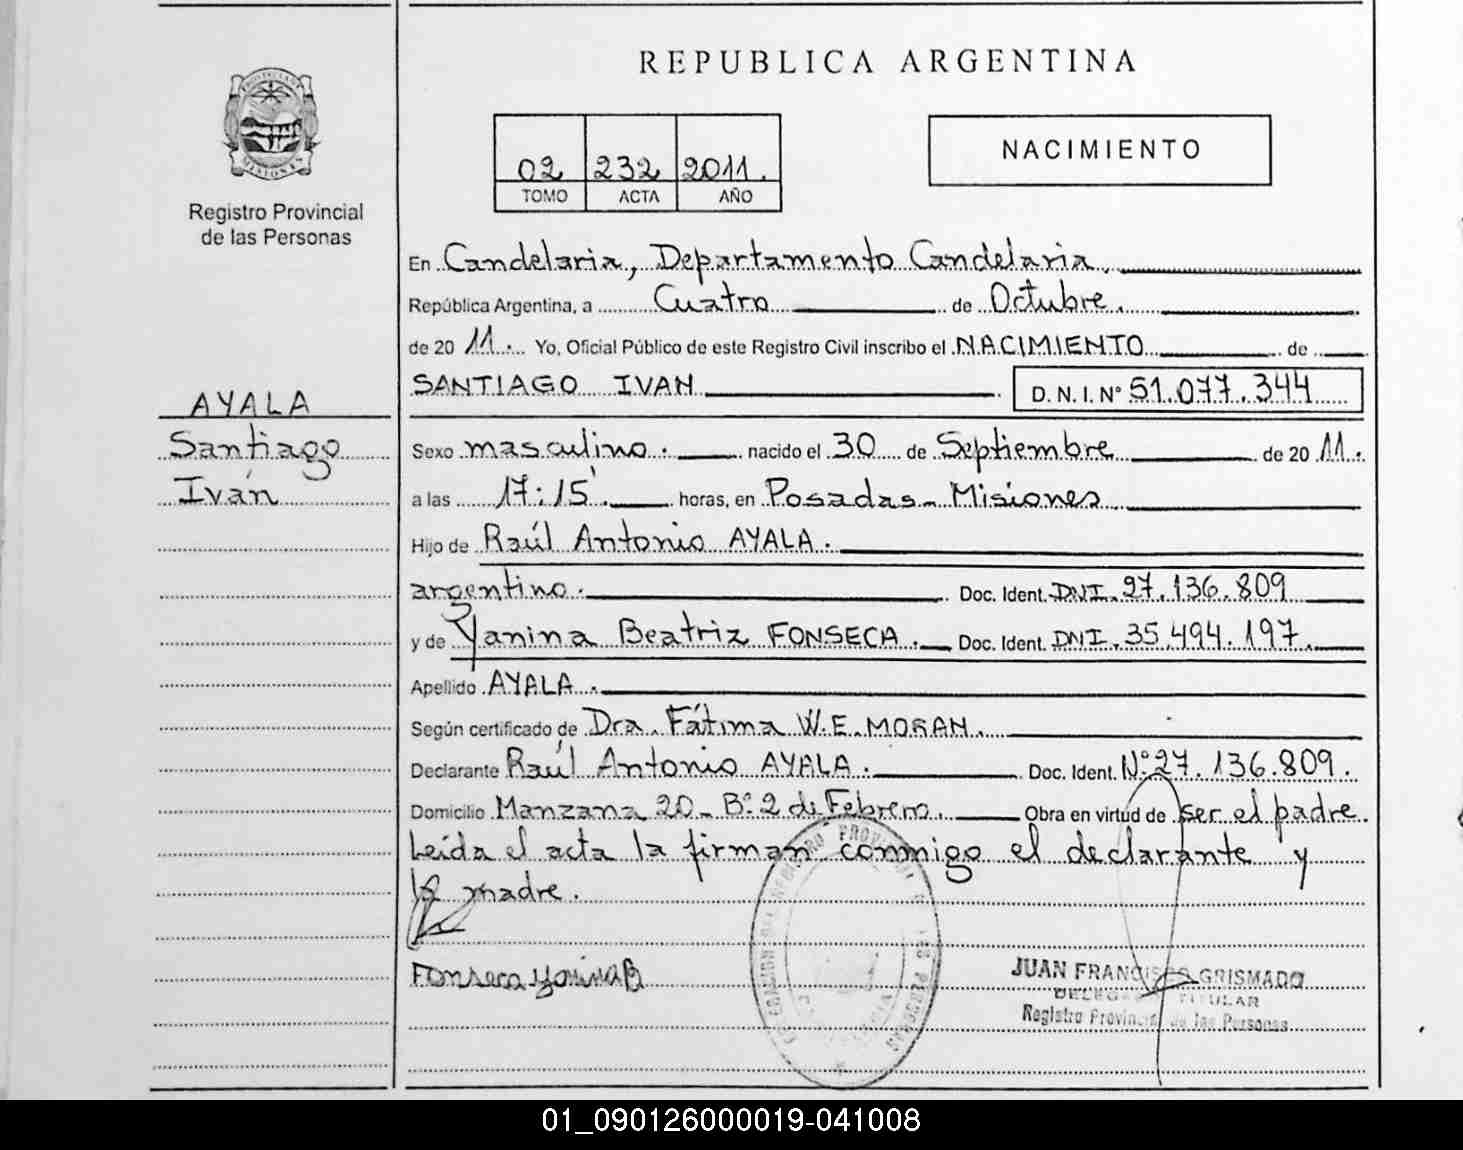 REPUBLICA ARGENTINA
MISIONES
Registro Provincial
de las Personas
02 232 2011.
TOMO ACTA AÑO
NACIMIENTO
En Candelaria, Departamento Candelaria.
República Argentina, a Cuatro de Octubre.
de 20 11. Yo, Oficial Público de este Registro Civil inscribo el NACIMIENTO de
SANTIAGO IVAN D. N. I. Nº 51.077.344
AYALA
Santiago
Iván
Sexo masculino. nacido el 30 de Septiembre de 20 11.
a las 17:15'. horas, en Posadas - Misiones
Hijo de Raúl Antonio AYALA.
argentino. Doc. Ident. DNI. 27.136.809
y de Yanina Beatriz FONSECA. Doc. Ident. DNI. 35.494.197.
Apellido AYALA.
Según certificado de Dra. Fátima W.E. MORAN.
Declarante Raúl Antonio AYALA. Doc. Ident. Nº 27.136.809.
Domicilio Manzana 20 - Bº 2 de Febrero. Obra en virtud de ser el padre.
Leida el acta la firman conmigo el declarante y
la madre.
Fonseca Yanina B
JUAN FRANCISCO GRISMADO
DELEGADO TITULAR
Registro Provincial de las Personas
01_090126000019-041008